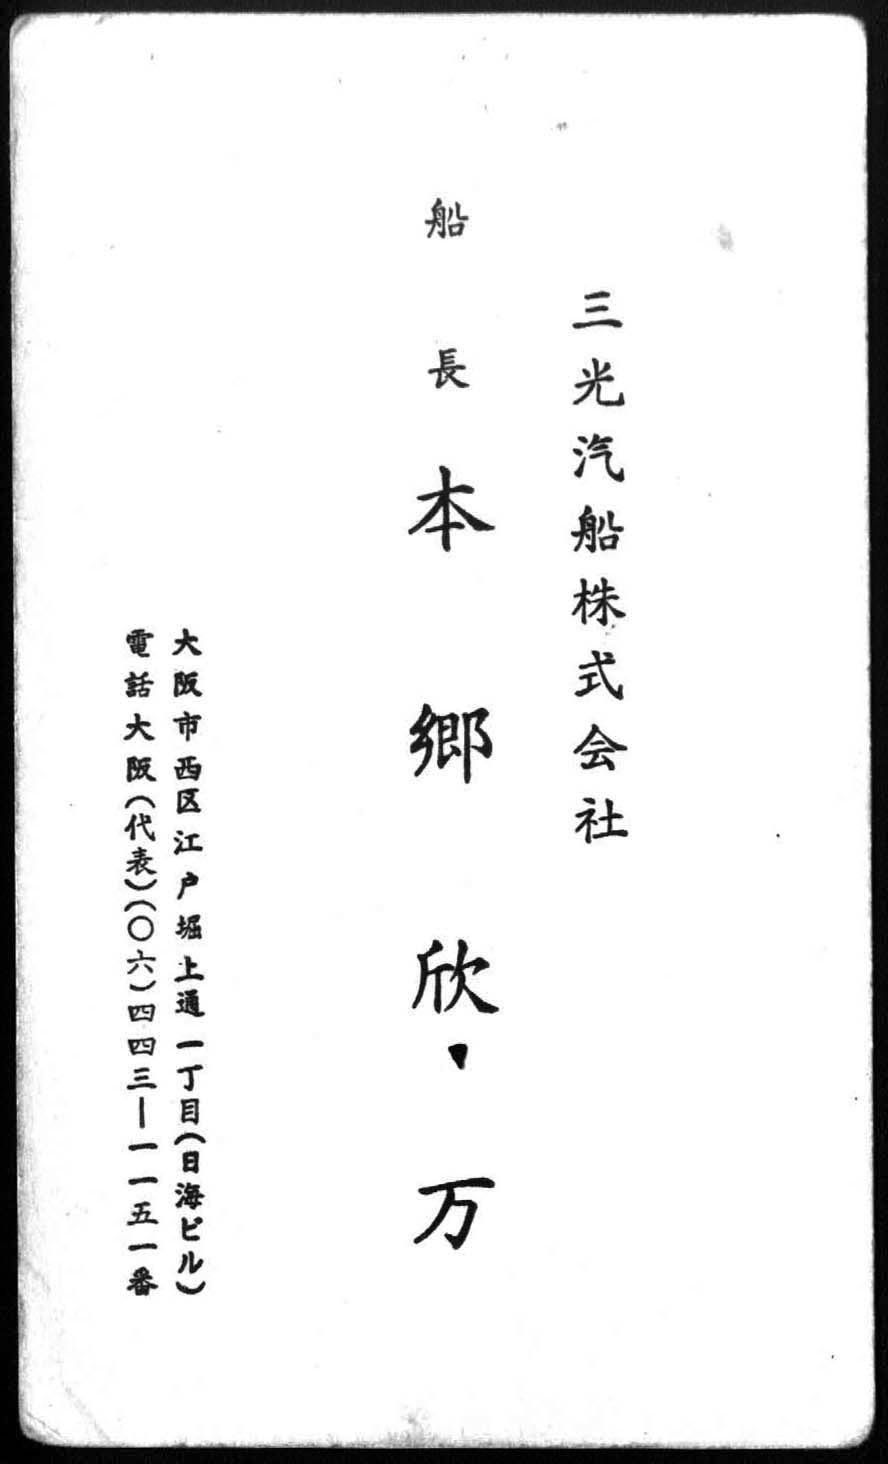 三光汽船株式会社
船長 本郷欣・万
大阪市西区江戸堀上通一丁目(日海ビル)
電話大阪(代表)(〇六)四四三―一一五一番